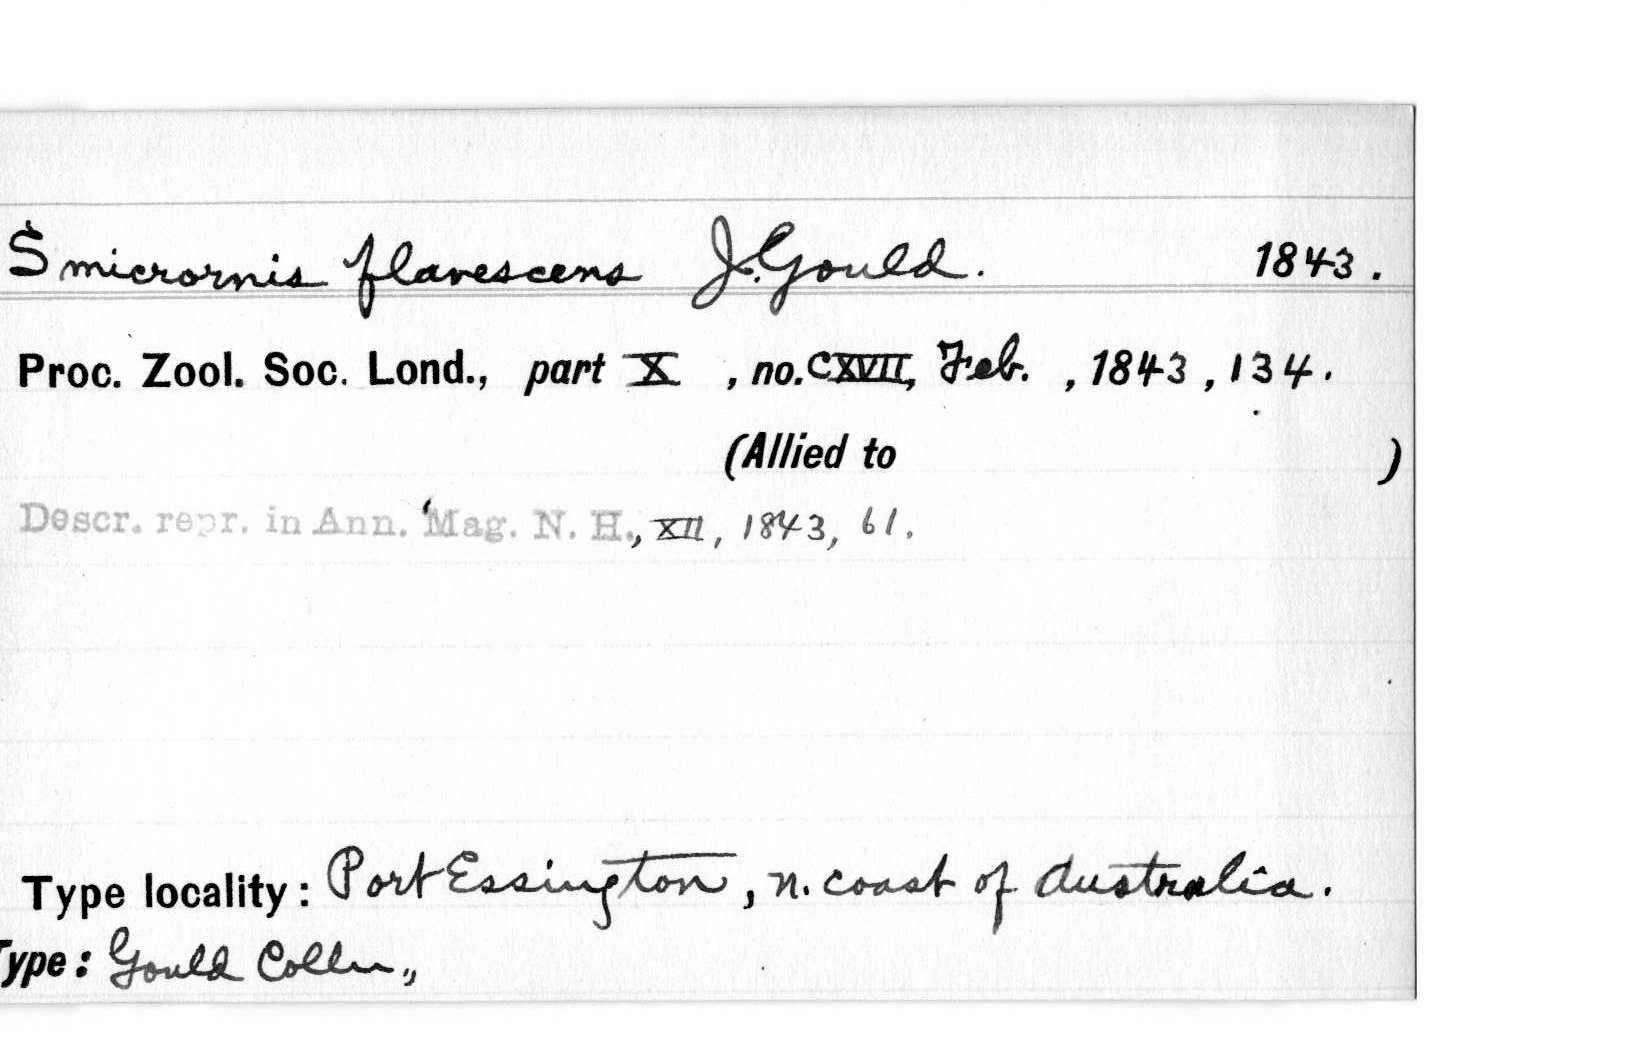 Smicrornis flavescens J. Gould. 1843.
Proc. Zool. Soc. Lond., part X , no. CXVII, Feb. , 1843 , 134.
(Allied to )
Descr. repr. in Ann. Mag. N. H., XII, 1843, 61.
Type locality: Port Essington, n. coast of Australia.
Type: Gould Colln.,